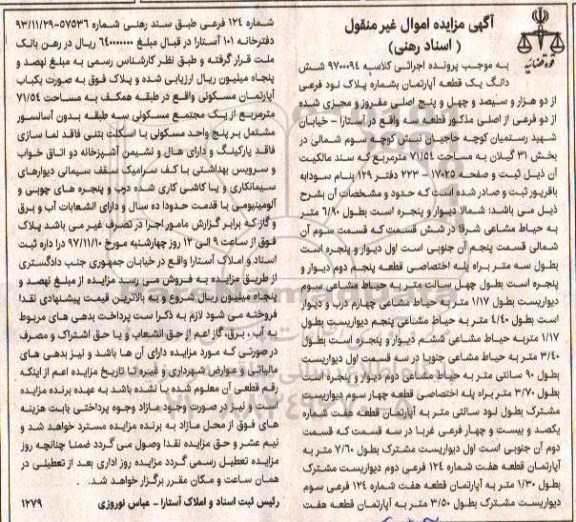 آگهی مزایده اموال غیر منقول
( اسناد رهنی)
قوه قضائیه
به موجب پرونده اجرائی کلاسه ۹۷۰۰۰۹۴ شش
دانگ یک قطعه آپارتمان بشماره پلاک نود فرعی
از دو هزار و سیصد و چهل و پنج اصلی مفروز و مجزی شده
از دو فرعی از اصلی مذکور قطعه سه واقع در آستارا - خیابان
شهید رستمیان کوچه حاجیان نبش کوچه سوم شمالی در
بخش ۳۱ گیلان به مساحت ۷۱/۵۴ مترمربع که سند مالکیت
آن ذیل ثبت و صفحه ۱۷۰۲۵ - ۲۲۳ دفتر ۱۲۹ بنام سودابه
باقرپور ثبت و صادر شده است که حدود و مشخصات آن بشرح
ذیل می باشد: شمالا دیوار و پنجره است بطول ۶/۹۰ متر
به حیاط مشاعی شرقا در شش قسمت که قسمت سوم آن
شمالی قسمت پنجم آن جنوبی است اول دیوار و پنجره است
بطول سه متر براه پله اختصاصی قطعه پنجم دوم دیوار و
پنجره است بطول چهل سانت متر به حیاط مشاعی سوم
دیواریست بطول ۱/۱۷ متر به حیاط مشاعی چهارم درب و دیوار
است بطول ۴/۴۰ متر به حیاط مشاعی پنجم دیواریست بطول
۱/۱۷ متر به حیاط مشاعی ششم دیوار و پنجره است بطول
۳/۴۰ متر به حیاط مشاعی جنوبا در سه قسمت اول دیواریست
بطول ۹۰ سانتی متر به حیاط مشاعی دوم دیوار و پنجره است
بطول ۳/۷۰ متر براه پله اختصاصی قطعه چهار سوم دیواریست
مشترک بطول نود سانتی متر به آپارتمان قطعه هفت شماره
یکصد و بیست و چهار فرعی غربا در سه قسمت که قسمت
دوم آن جنوبی است اول دیواریست مشترک بطول ۷/۶۰ متر به
آپارتمان قطعه هفت شماره ۱۲۴ فرعی دوم دیواریست مشترک
بطول ۱/۳۰ متر به آپارتمان قطعه هفت شماره ۱۲۴ فرعی سوم
دیواریست مشترک بطول ۳/۵۰ متر به آپارتمان قطعه هفت
شماره ۱۲۴ فرعی طبق سند رهنی شماره ۵۷۵۳۶-۹۳/۱۱/۲۹
دفترخانه ۱۰۱ آستارا در قبال مبلغ ۶۴۰۰۰۰۰۰۰ ریال در رهن بانک
ملت قرار گرفته و طبق نظر کارشناس رسمی به مبلغ نهصد و
پنجاه میلیون ریال ارزیابی شده و پلاک فوق به صورت یکباب
آپارتمان مسکونی واقع در طبقه همکف به مساحت ۷۱/۵۴
مترمربع از یک مجتمع مسکونی سه طبقه بدون آسانسور
مشتمل بر پنج واحد مسکونی با اسکلت بتنی فاقد نما سازی
فاقد پارکینگ و دارای هال و نشیمن آشپزخانه دو اتاق خواب
و سرویس بهداشتی با کف سرامیک سقف سیمانی دیوارهای
سیمانکاری و یا کاشی کاری شده درب و پنجره های چوبی و
آلومینیومی با قدمت حدودا ده سال و دارای انشعابات آب و برق
و گاز که برابر گزارش مامور اجرا در تصرف غیر می باشد پلاک
فوق از ساعت ۹ الی ۱۲ روز چهارشنبه مورخ ۹۷/۱۱/۱۰ در اداره ثبت
اسناد و املاک آستارا واقع در خیابان جمهوری جنب دادگستری
از طریق مزایده به فروش می رسد. مزایده از مبلغ نهصد و
پنجاه میلیون ریال شروع و به بالاترین قیمت پیشنهادی نقدا
فروخته می شود لازم به ذکر است پرداخت بدهی های مربوط
به آب ، برق، گاز اعم از حق انشعاب و یا حق اشتراک و مصرف
در صورتی که مورد مزایده دارای آن ها باشد و نیز بدهی های
مالیاتی و عوارض شهرداری و غیره تا تاریخ مزایده اعم از اینکه
رقم قطعی آن معلوم شده یا نشده باشد به عهده برنده مزایده
است و نیز در صورت وجود مازاد وجوه پرداختی بابت هزینه
های فوق از محل مازاد به برنده مزایده مسترد خواهد شد و
نیم عشر و حق مزایده نقدا وصول می گردد ضمنا چنانچه روز
مزایده تعطیل رسمی گردد مزایده روز اداری بعد از تعطیلی در
همان ساعت و مکان مقرر برگزار خواهد شد.
رئیس ثبت اسناد و املاک آستارا - عباس نوروزی ۱۲۷۹